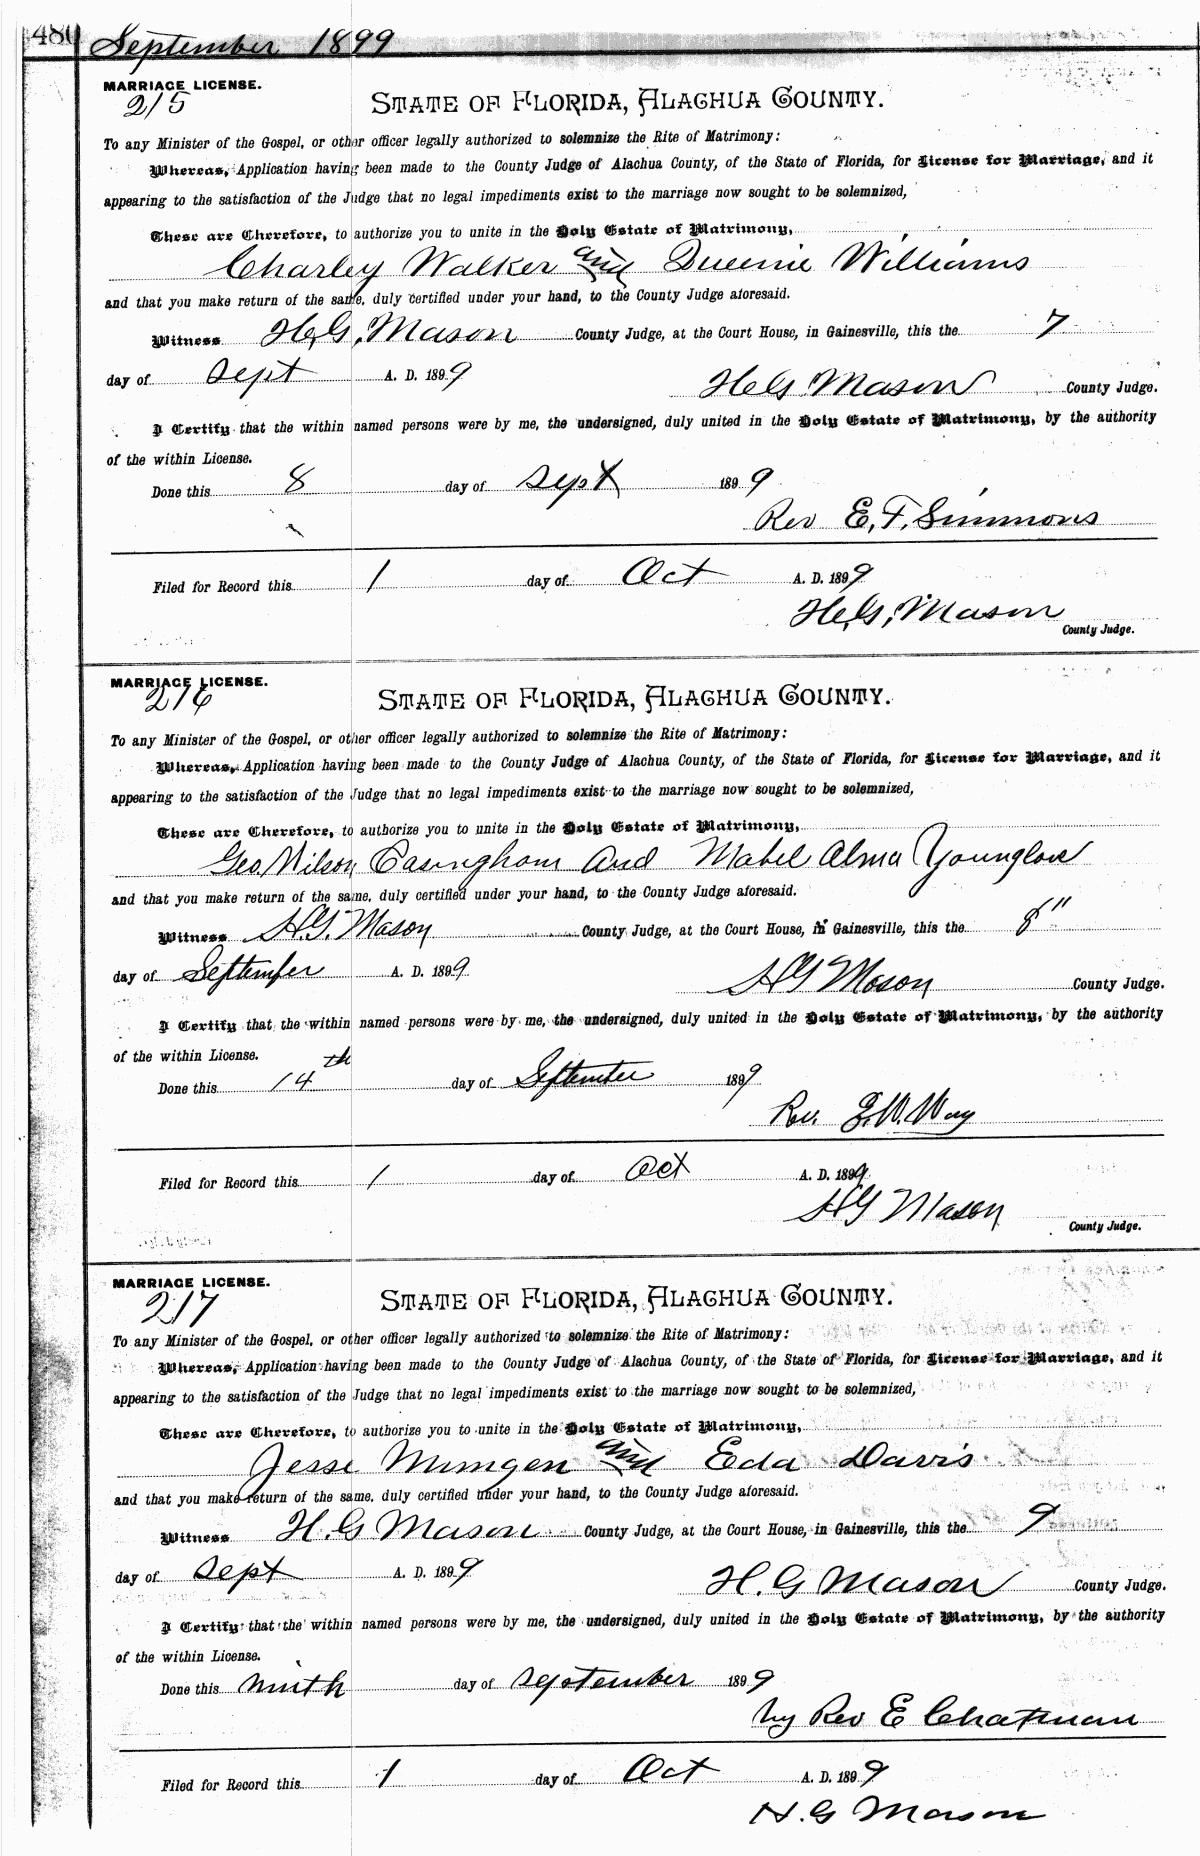 480 September 1899
MARRIAGE LICENSE.
215
STATE OF FLORIDA, ALACHUA COUNTY.
To any Minister of the Gospel, or other officer legally authorized to solemnize the Rite of Matrimony:
Whereas, Application having been made to the County Judge of Alachua County, of the State of Florida, for License for Marriage, and it
appearing to the satisfaction of the Judge that no legal impediments exist to the marriage now sought to be solemnized,
These are Therefore, to authorize you to unite in the Holy Estate of Matrimony,
Charley Walker and Queenie Williams
and that you make return of the same, duly certified under your hand, to the County Judge aforesaid.
Witness H.G. Mason County Judge, at the Court House, in Gainesville, this the 7
day of Sept A. D. 1899
H.G. Mason County Judge.
I Certify that the within named persons were by me, the undersigned, duly united in the Holy Estate of Matrimony, by the authority
of the within License.
Done this 8 day of Sept 1899
Rev E. F. Simmons
Filed for Record this 1 day of Oct A. D. 1899
H.G. Mason
County Judge.
MARRIAGE LICENSE.
216
STATE OF FLORIDA, ALACHUA COUNTY.
To any Minister of the Gospel, or other officer legally authorized to solemnize the Rite of Matrimony:
Whereas, Application having been made to the County Judge of Alachua County, of the State of Florida, for License for Marriage, and it
appearing to the satisfaction of the Judge that no legal impediments exist to the marriage now sought to be solemnized,
These are Therefore, to authorize you to unite in the Holy Estate of Matrimony,
Geo. Wilson Easingham and Mabel Alma Younglove
and that you make return of the same, duly certified under your hand, to the County Judge aforesaid.
Witness H.G. Mason County Judge, at the Court House, in Gainesville, this the 8"
day of September A. D. 1899
HG Mason County Judge.
I Certify that the within named persons were by me, the undersigned, duly united in the Holy Estate of Matrimony, by the authority
of the within License.
Done this 14th day of September 1899
Rev. W. Way
Filed for Record this 1 day of Oct A. D. 1899
HG Mason
County Judge.
MARRIAGE LICENSE.
217
STATE OF FLORIDA, ALACHUA COUNTY.
To any Minister of the Gospel, or other officer legally authorized to solemnize the Rite of Matrimony:
Whereas, Application having been made to the County Judge of Alachua County, of the State of Florida, for License for Marriage, and it
appearing to the satisfaction of the Judge that no legal impediments exist to the marriage now sought to be solemnized,
These are Therefore, to authorize you to unite in the Holy Estate of Matrimony,
Jesse Mimgen and Eda Davis
and that you make return of the same, duly certified under your hand, to the County Judge aforesaid.
Witness H. G Mason County Judge, at the Court House, in Gainesville, this the 9
day of Sept A. D. 1899
H. G Mason County Judge.
I Certify that the within named persons were by me, the undersigned, duly united in the Holy Estate of Matrimony, by the authority
of the within License.
Done this ninth day of september 1899
by Rev E Chatman
Filed for Record this 1 day of Oct A. D. 1899
H. G Mason